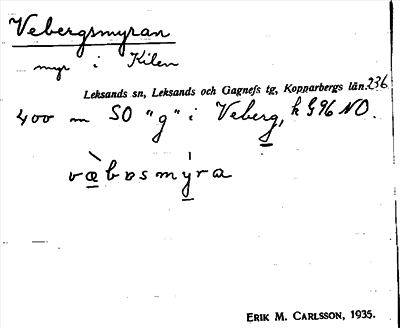 Vebergsmyran
myr i Kilen
Leksands sn, Leksands och Gagnefs tg, Kopparbergs län. 236
400 m SO "g" i Veberg, k G 96 NO.
væbɒsmýra
ERIK M. CARLSSON, 1935.